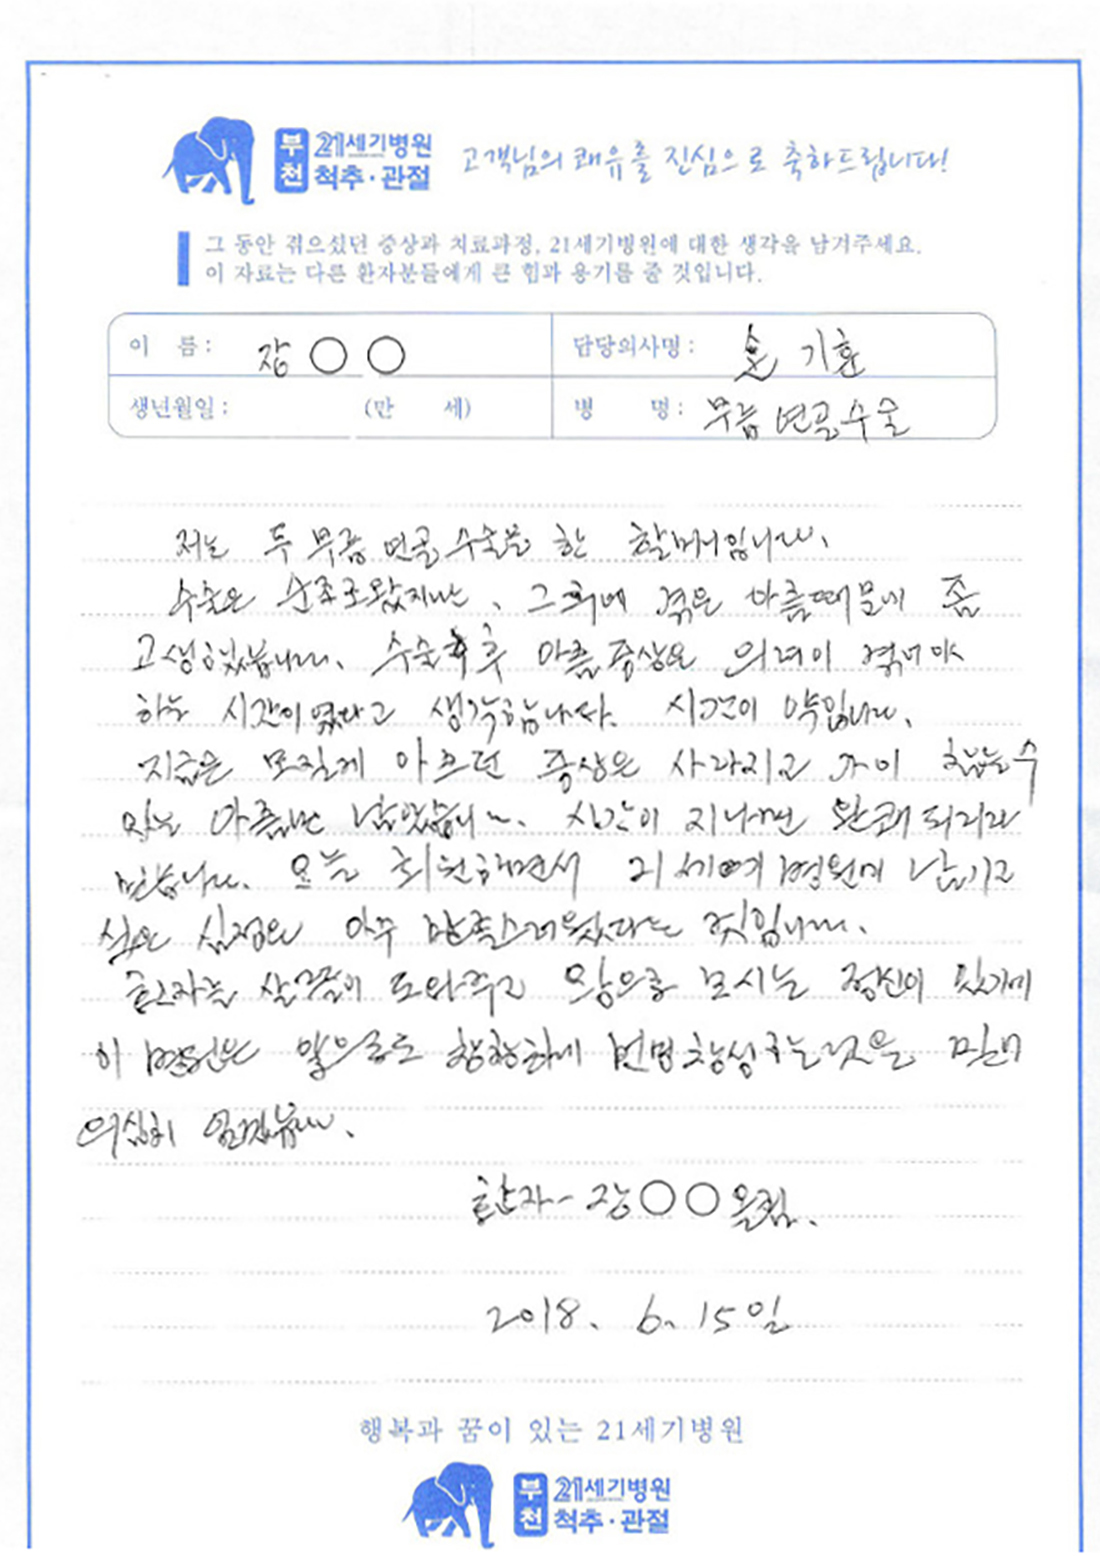 부천 21세기병원 척추·관절 고객님의 쾌유를 진심으로 축하드립니다!
그 동안 겪으셨던 증상과 치료과정, 21세기병원에 대한 생각을 남겨주세요.
이 자료는 다른 환자분들에게 큰 힘과 용기를 줄 것입니다.
이 름: 장○○ 담당의사명: 손 기훈
생년월일: (만 세) 병 명: 무릎 연골수술
저는 두 무릎 연골 수술을 한 할머니입니다.
수술은 순조로왔지만, 그 후에 겪은 아픔때문에 좀
고생했습니다. 수술후 아픔 증상은 의례이 겪어야
하는 시간이였다고 생각합니다. 시간이 약입니다.
지금은 모질게 아프던 증상은 사라지고 참는수
있는 아픔만 남았습니다. 시간이 지나면 완쾌되리라
믿습니다. 오늘 퇴원하면서 21세기병원에 남기고
싶은 심정은 아주 만족스러웠다는 것입니다.
환자를 살뜰이 도와주고 왕으로 모시는 정신이 있기에
이 병원은 앞으로도 창창하게 번영창성하는것을 믿어
의심치 않습니다.
환자- 장○○올림.
2018. 6. 15일
행복과 꿈이 있는 21세기병원
부천 21세기병원 척추·관절